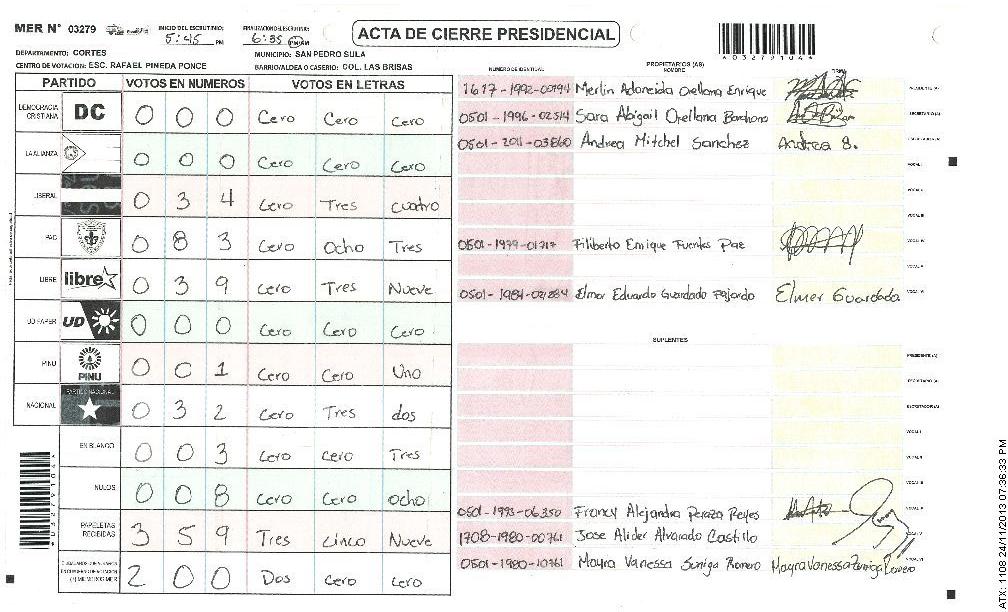 MER N° 03279
INICIO DEL ESCRUTINIO:
5:45 PM
FINALIZACION ESCRUTINIO:
6:35 PM/AM
ACTA DE CIERRE PRESIDENCIAL
*03279104*
DEPARTAMENTO: CORTES
MUNICIPIO: SAN PEDRO SULA
CENTRO DE VOTACION: ESC. RAFAEL PINEDA PONCE
BARRIO/ALDEA O CASERIO: COL. LAS BRISAS
PARTIDO VOTOS EN NUMEROS VOTOS EN LETRAS
DEMOCRACIA CRISTIANA DC 0 0 0 Cero Cero Cero
LA ALIANZA 0 0 0 Cero Cero Cero
LIBERAL 0 3 4 Cero Tres cuatro
PAC 0 8 3 Cero Ocho Tres
LIBRE libre 0 3 9 Cero Tres Nueve
UD FAPER UD 0 0 0 Cero Cero Cero
PINU PINU 0 0 1 Cero Cero Uno
NACIONAL PARTIDO NACIONAL 0 3 2 Cero Tres dos
EN BLANCO 0 0 3 Cero cero Tres
NULOS 0 0 8 Cero Cero ocho
PAPELETAS RECIBIDAS 3 5 9 Tres cinco Nueve
2 0 0 Dos cero cero
*03279104*
NUMERO DE IDENTIDAD
PROPIETARIOS (AS)
NOMBRE
FIRMA
1617-1992-00794 Merlin Adoneida Orellana Enrique PRESIDENTE (A)
0501-1996-02514 Sara Abigail Orellana SECRETARIO (A)
0501-2011-03860 Andrea Mitchel Sanchez Andrea S. ESCRUTADOR (A)
VOCAL I
VOCAL II
VOCAL III
0501-1979-01717 Filiberto Enrique Fuentes Paz VOCAL IV
VOCAL V
0501-1984-02884 Elmer Eduardo Guardado Fajardo Elmer Guardado VOCAL VI
SUPLENTES
PRESIDENTE (A)
SECRETARIO (A)
ESCRUTADOR (A)
VOCAL I
VOCAL II
VOCAL III
0501-1993-06350 Francy Alejandra Peraza Reyes VOCAL IV
1708-1980-00761 Jose Alider Alvarado Castillo VOCAL V
0501-1980-10761 Mayra Vanessa Suniga Romero Mayra Vanessa Zuniga Romero VOCAL VI
ATX: 1108 24/11/2013 07:36:33 PM